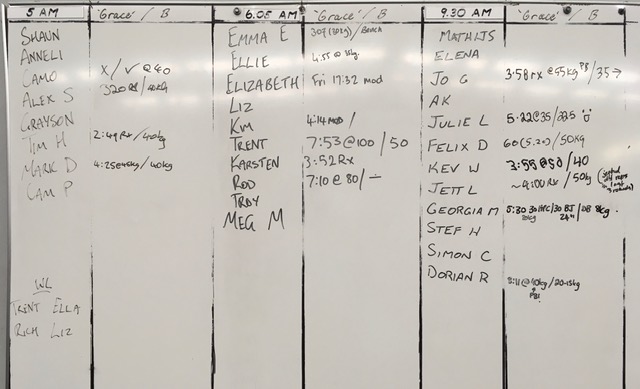 5 AM 'Grace' / B
SHAUN
ANNELI
CAMO X/✓ @40
ALEX S 3:20 RX / 40kg
GRAYSON
TIM H 2:49 Rx / 40kg
MARK D / 40kg
CAM P
WL
TRENT ELLA
RICH LIZ
6.05 AM 'Grace' / B
EMMA E / Bench
ELLIE 4:55 @
ELIZABETH Fri 17:32 mod
LIZ
KIM 4:14 MOD /
TRENT 7:53 @ 100 / 50
KARSTEN 3:52 Rx
ROD 7:10 @ 80 / —
TROY
MEG M
9.30 AM 'Grace' / B
MATHIJS
ELENA
JO G 3:58 rx @ 55kg PB / 35 →
AK
JULIE L 5:22 @ 35 / 22.5
FELIX D 60 (5:20) / 50KG
KEV W 3:55 @ 50 / 40
JETT L ~ 9:00 Rx / 50kg
GEORGIA M 5:30 30 / 30 BJ / DB 8kg
24"
STEF H
SIMON C
DORIAN R @ 40kg /
PB!